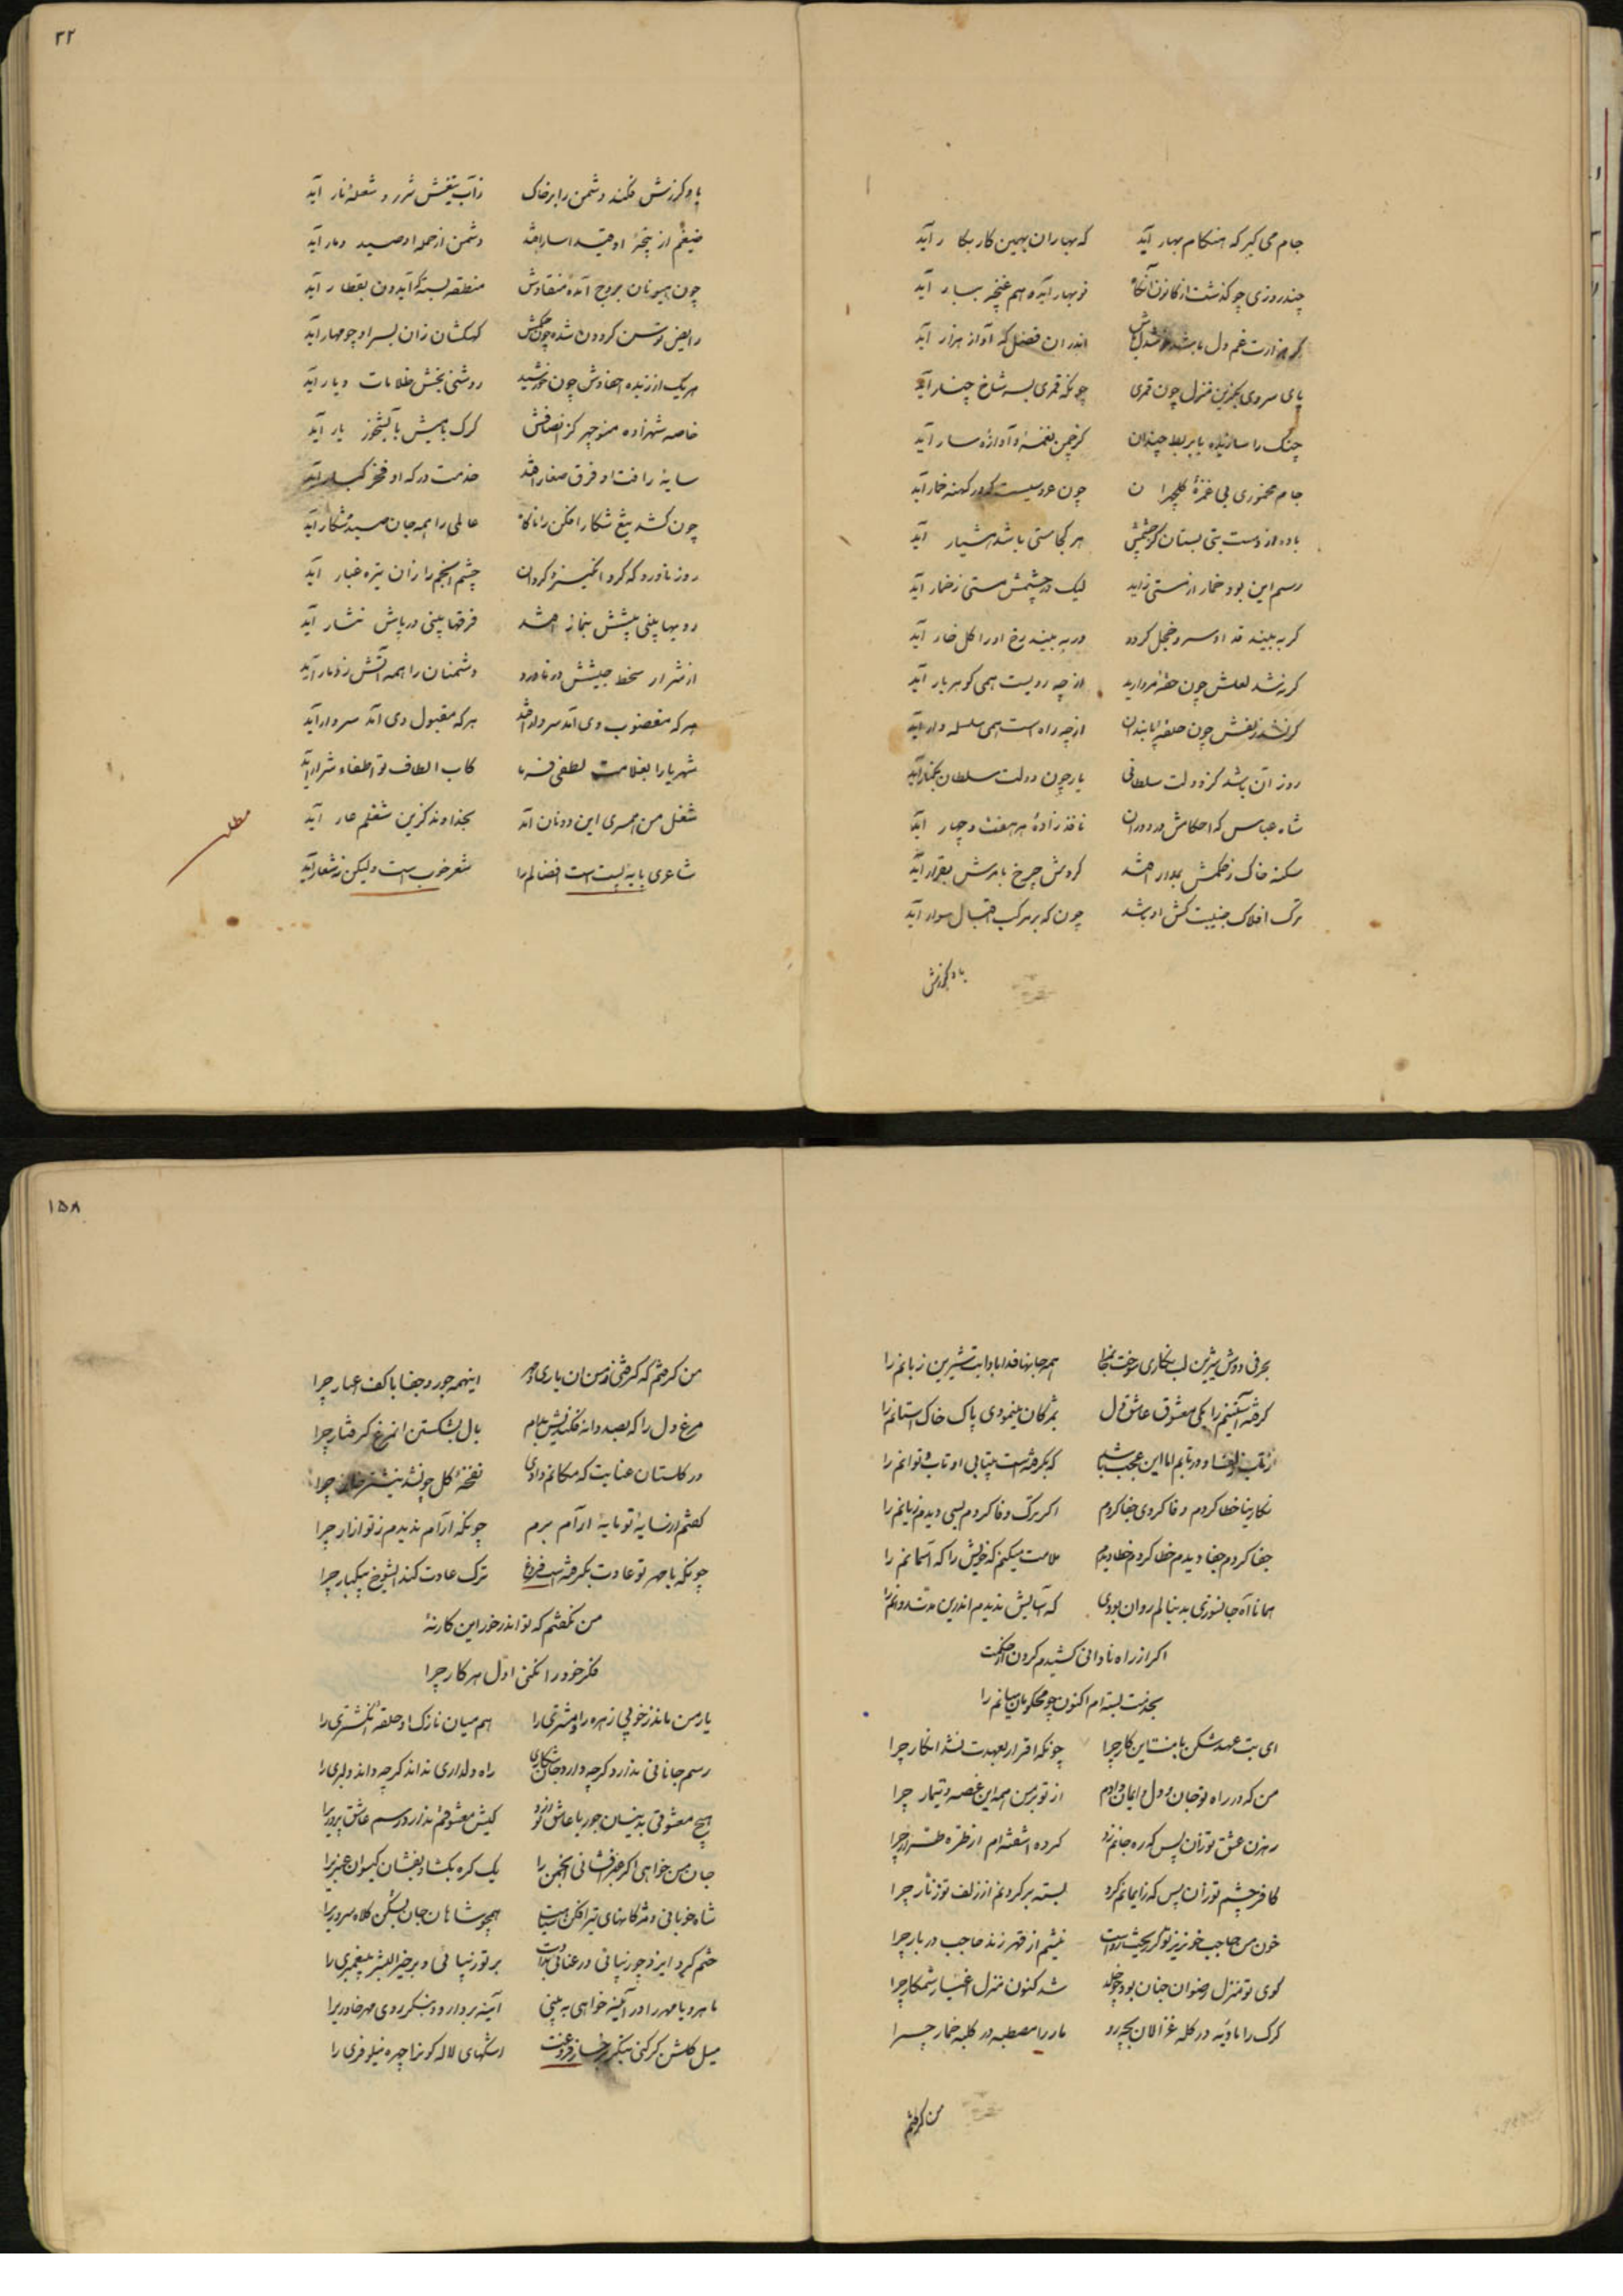 جام می گیر که هنگام بهار آید که بهاران بهمین کار بکار آید
چند روزی چو گذشت از کانون آنگاه نو بهار آید و هم غنچه ببار آید
گر هزارت غم دل باشد اندران فصل که آواز هزار آید
پای سروی بگزین منزل چون قمری چونکه قمری بسر شاخ چنار آید
چنک را ساز بده یا بربط چندان کز چمن نغمه و آوازه سار آید
جام مخموری بی غمزه گلچهران چون عروسیست که در کهنه خمار آید
باده از دست بتی بستان کز چشمش هر کجا مستی باشد هشیار آید
رسم این بود خمار از مستی زاید لیک در چشمش مستی ز خمار آید
گر به بیند قد او سرو خجل گردد ور به بیند رخ او را گل خار آید
گر نشد لعلش چون حقه مروارید از چه رویست همی گوهر بار آید
گر نشد زلفش چون حلقه از چه راه است همی سلسله وار آید
روز آن باشد کز دولت سلطانی یار چون دولت سلطان بکنار آید
شاه عباس که احکامش در دوران نافذ زاده هر هفت و چهار آید
سکنه خاک ز حکمش بمدار افتد گردش چرخ با مرش بقرار آید
ترک افلاک جنیبت کش او باشد چون که بر مرکب اقبال سوار آید
باد گرزش
۳۲
باد گرزش فکند دشمن را بر خاک زآب تیغش شرر و شعله نار آید
ضیغم از پنجه او قید اسار افتد دشمن از حمله او صید دمار آید
چون هیونان بروج آمده منقادش منطقه بسته گر آیدون بقطار آید
رایض توسن گردون شده چون حکمش کهکشان زان بسر او چو مهار آید
هر یک از زبده احفادش چون خورشید روشنی بخش ظلامات دیار آید
خاصه شهزاده منوچهر کز انصافش گرگ با میش بآبشخور یار آید
سایه رافت او فرق صغار افتد خدمت درگه او فخر کبار آید
چون کشد تیغ شکار افکن را ناگاه عالمی را همه جان صید شکار آید
روز ناورد که گرد انگیزد گردان چشم انجم را زان تیره غبار آید
رویها بینی پیشش بنماز افتد فرقها بینی در پاش نثار آید
از شرار سخط جیشش در ناورد دشمنان را همه آتش ز دمار آید
هر که مغضوب وی آمد سر دار افتد هر که مقبول وی آمد سردار آید
شهریارا بغلامت لطفی فرما کاب الطاف تو اطفاء شرار آید
شغل من همسری این دونان آمد بخداوند کزین شغلم عار آید
شاعری پایه پست است افضالم را شعر خوب است ولیکن نه شعار آید
مطلب
بحرفی دوش شیرین لب نگاری سوخت جانم را همه جانها فدا بادا بت شیرین زبانم را
گرفته آستینم را یکی معشوق عاشق دل بمژگان مینمودی پاک خاک آستانم را
که بگرفته است بیتابی او تاب و توانم را
نگارینا خطا کردم وفا کردی جفا کردم اگر ترک وفا کردم بسی دیدم زیانم را
جفا کردم جفا دیدم خطا کردم خطا دیدم ملامت میکنم که خویش را که آسمانم را
همانا آه جانسوزی بدنبالم روان بودی که آسایش ندیدم اندرین مدت روانم را
اگر از راه نادانی کشیدم گردن از حکمت
بخدمت بسته ام اکنون چو محکومان میانم را
ای بت عهد شکن با منت این کار چرا چونکه اقرار بعهدت نشد انکار چرا
من که در راه تو جان و دل و ایمان دادم از تو بر من همه این غصه و تیمار چرا
رهزن عشق تو زان پس که ره جانم زد کرده آشفته ام از طره طرار چرا
کافر چشم تو زان پس که ز ایمانم کرد بسته بر گردنم از زلف تو زنار چرا
خون من حاجب خونریز تو گر ریخت رواست نیشم از قهر زند حاجب دربار چرا
کوی تو منزل رضوان جنان بود چو خلد شد کنون منزل اغیار ستمکار چرا
گرگ را بادیه در گله غزالان بچه رو مار را مصطبه در کلبه خمار چرا
من گرفتم
۱۵۸
من گرفتم که گرفتی ز من آن یاری و مهر اینهمه جور و جفا با کف اغیار چرا
مرغ دل را که بصد دانه فکندیش بدام بال بشکستن آنمرغ گرفتار چرا
در گلستان عنایت که مکانم دادی نفخه گل چو نشد نیشتر خار چرا
گفتم از سایه تو مایه آرام برم چونکه آرام ندیدم ز تو آزار چرا
چونکه با مهر تو عادت بگرفته است فروغ ترک عادت کند ایشوخ بیکبار چرا
من نگفتم که تو اندر خور این کار نه
فکر خود را نکنی اول هر کار چرا
یار من ماند ز خوبی زهره را و مشتری را هم میان نازک او حلقه انگشتری را
رسم جانانی ندارد گرچه دارد راه دلداری نداند گرچه داند دلبری را
هیچ معشوقی بدینسان جور با عاشق نورزد کیش معشوقم ندارد رسم عاشق پروریرا
جان من خواهی اگر عنبر فشانی انجمن را یک گره بگشا و بفشان گیسوان عنبریرا
شاه خوبانی و مژگانهای تیر افکن سپاهت همچو شاهان جهان بشکن کلاه سروریرا
ختم کرد ایزد چو زیبائی و رعنائی بذاتت بر تو زیبائی و بر خیر البشر پیغمبری را
ماهرویا مهر را در آینه خواهی به بینی آینه بردار و بنگر روی مهر خاوریرا
میل گلشن گر کنی بنگر رخسار فروغت اشکهای لاله گون را چهره نیلوفری را